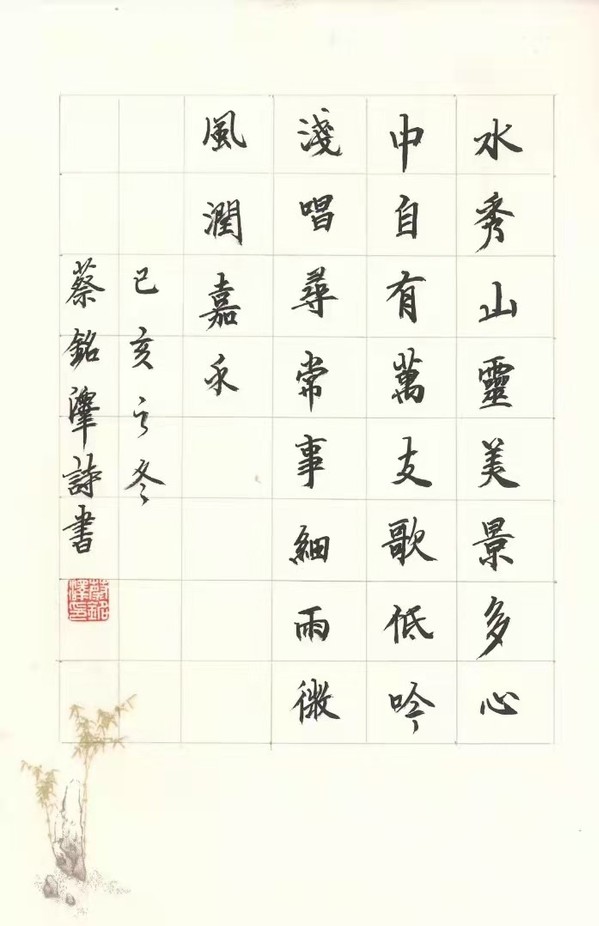 水秀山靈美景多心
中自有萬支歌低吟
淺唱尋常事細雨微
風潤嘉禾
己亥之冬
蔡銘澤詩書
蔡銘澤印